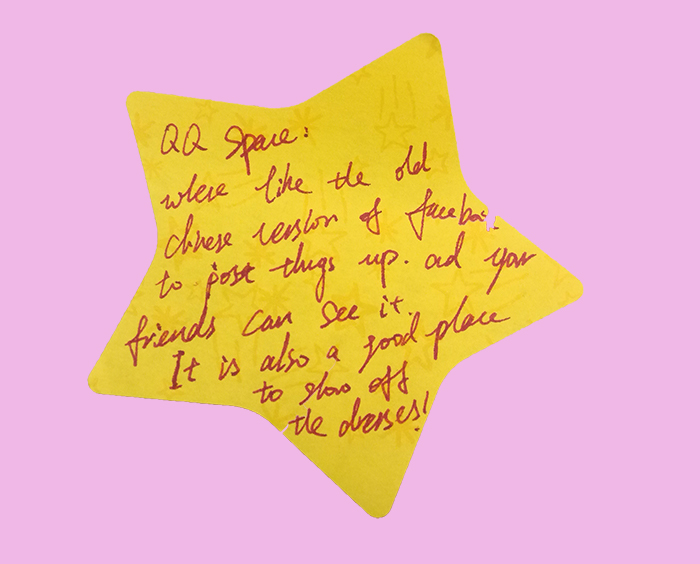 QQ Space:
where like the old
chinese version of facebo
to post thigs up. and your
friends can see it.
It is also a good place
to show off
the dresses!